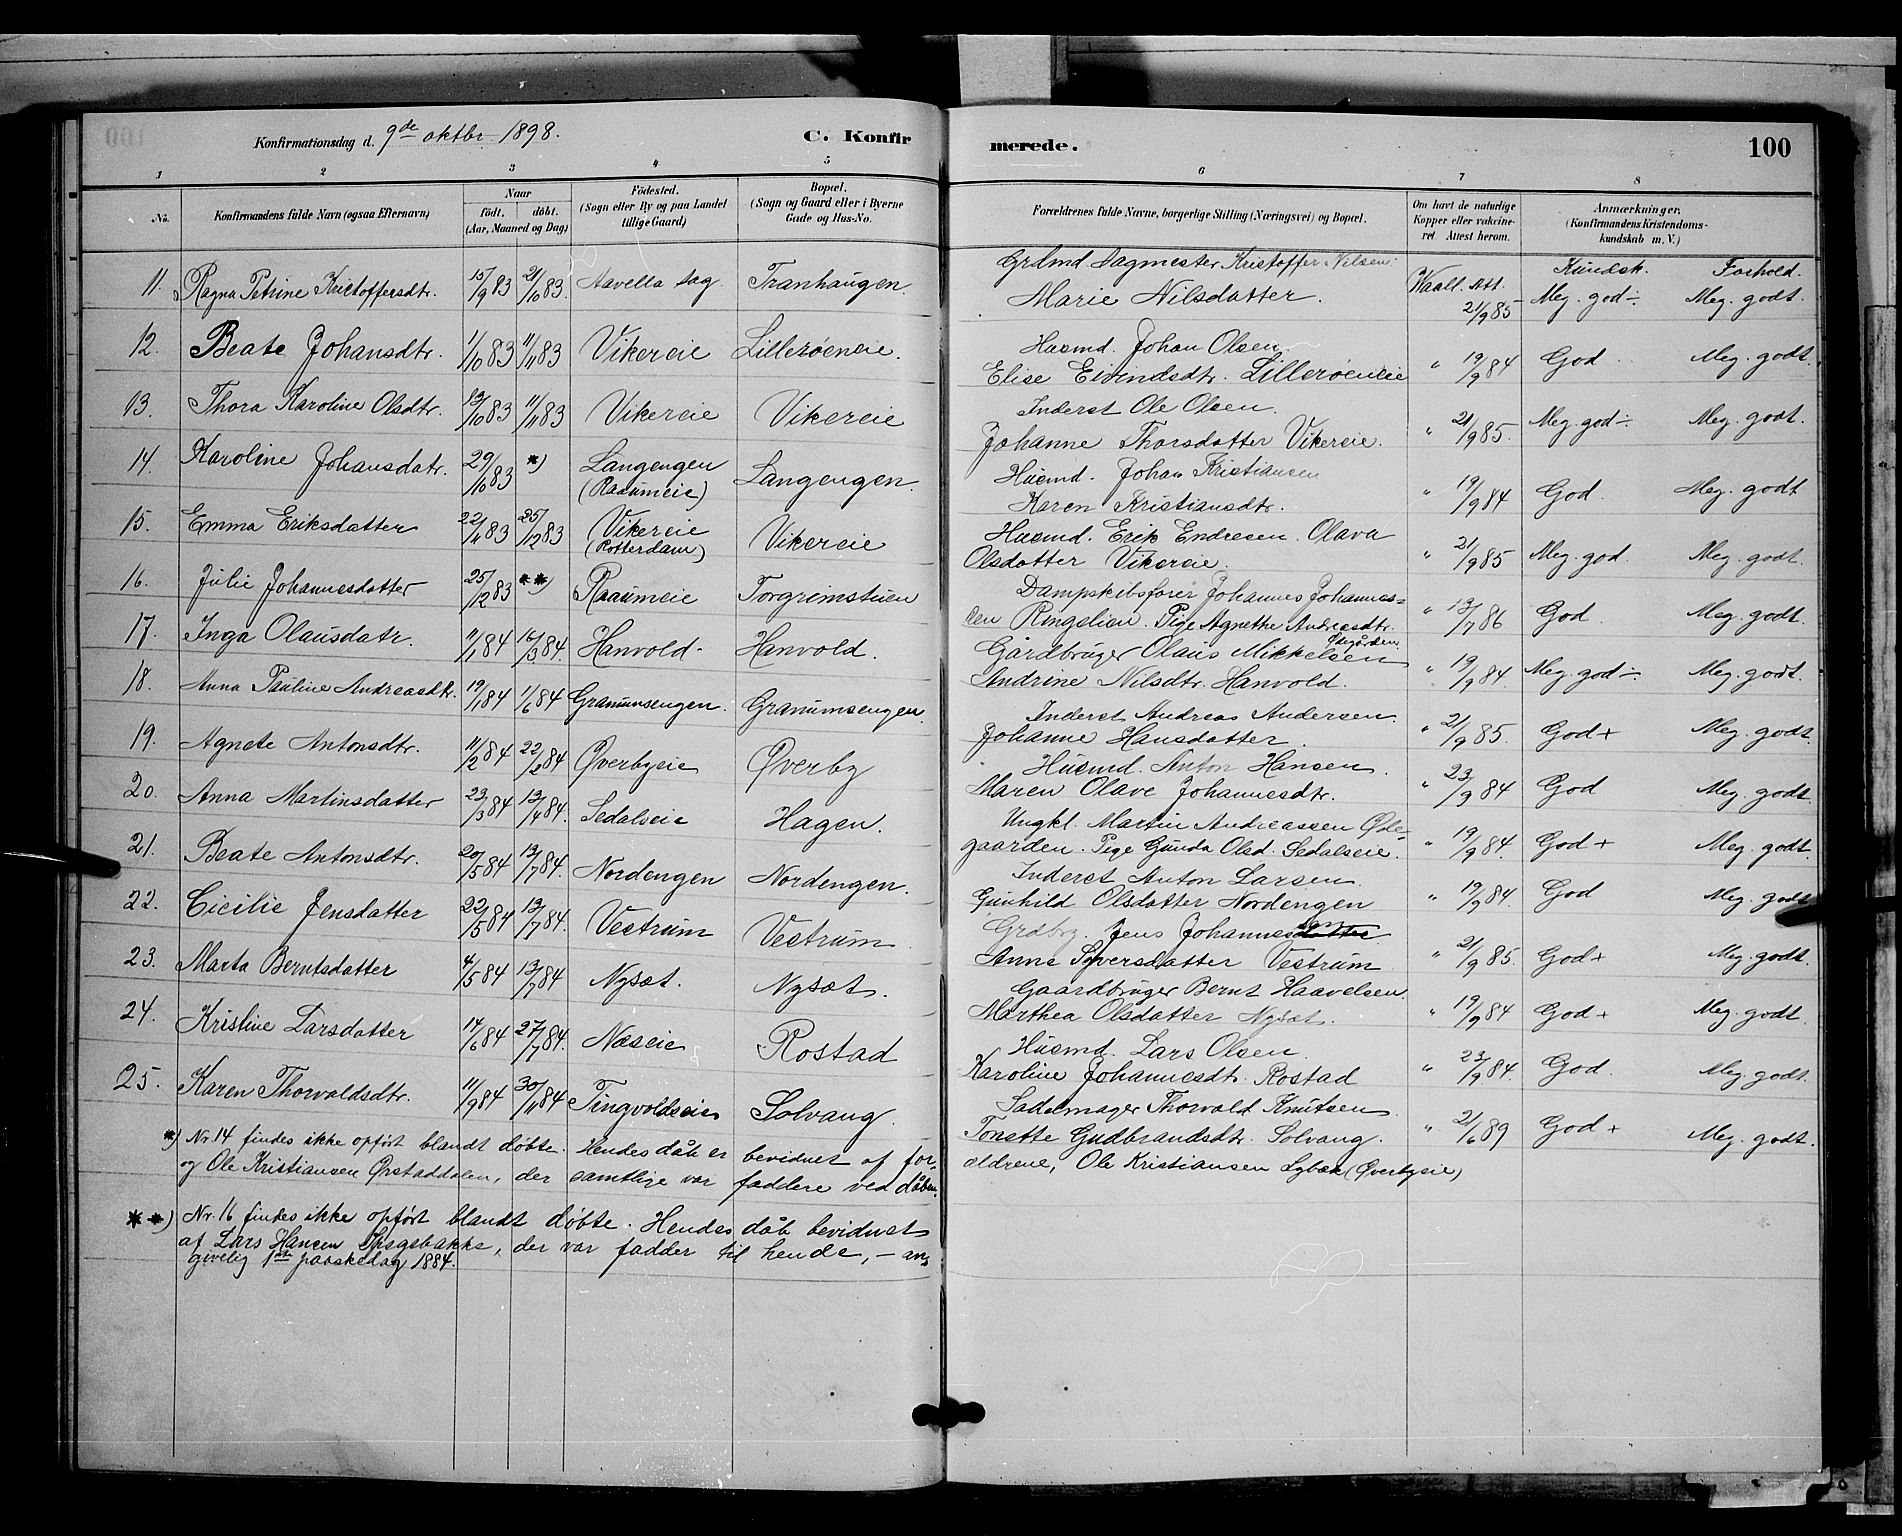 Konfirmationsdag d. 9de oktbr 1898. C. Konfir
1 2 3 4 5
No. Konfirmandens fulde Navn (ogsaa Efternavn) Naar født. døbt. (Aar, Maaned og Dag) Fødested. (Sogn eller By og paa Landet tillige Gaard) Bopæl. (Sogn og Gaard eller i Byerne Gade og Hus-No.
11. Ragna Petrine Kristoffersdtr. 15/9 83 21/10 83. Aavella sag Tranhaugen
12. Beate Johansdtr. 1/10 83 11/11 83 Vikereie Lillerøeneie.
13. Thora Karoline Olsdtr. 13/10 83 11/11 83 Vikereie Vikereie
14. Karoline Johansdatr. 29/10 83 *) Langengen (Raaumeie) Langengen.
15. Emma Eriksdatter 22/11 83 25/12 83 Vikereie (Rotterdam) Vikereie
16. Julie Johannesdatter 25/12 83 **) Raaumeie Torgrimstuen
17. Inga Olausdatr. 11/1 84 16/3 84. Hanvold Hanvold.
18. Anna Pauline Andreasdtr. 19/1 84 1/6 84 Granumsengen. Granumsengen.
19. Agnete Antonsdtr. 11/2 84 22/2 84 Øverbyeie Øverby
20. Anna Martinsdatter 23/3 84 13/4 84. Sedalseie Hagen.
21. Beate Antonsdtr. 20/5 84 13/7 84. Nordengen Nordengen.
22. Cicilie Jensdatter 22/5 84 13/7 84. Vestrum Vestrum
23. Marta Berntsdatter 4/5 84 13/7 84 Nysæt. Nysæt.
24. Kristine Larsdatter 14/6 84 27/7 84. Næseie Rostad
25. Karen Thorvaldsdtr. 11/9 84 30/11 84 Tingvoldseie Solvang.
*) Nr. 14 findes ikke opført blandt døbte. Hendes dåb er bevidnet af for-
og Ole Kristiansen Ørstaddalen, der samtlige var faddere ved dåben.
**) Nr. 16 findes ikke opført blandt døbte. Hendes dåb bevidnet
af Lars Hansen, der var fadder til hende, – an-
givelig 1ste paaskedag 1884.
merede. 100
6 7 8
Forældrenes fulde Navne, borgerlige Stilling (Næringsvei) og Bopæl. Om havt de naturlige Kopper eller vakcineret. Attest herom. Anmærkninger. (Konfirmandens Kristendomskundskab m. V.)
Kundsk. Forhold.
Grdmd. Sagmester Kristoffer Nilsen.
Marie Nilsdatter. Waall. att. 21/9 85 Meg. god ÷ Meg. godt.
Husmd. Johan Olsen.
Elise Eivindsdtr. Lillerøeneie " 19/9 84 God Meg. godt.
Inderst Ole Olsen.
Johanne Thorsdatter Vikereie. " 21/9 85. Meg. god ÷ Meg. godt.
Husmd. Johan Kristiansen
Karen Kristiansdtr. " 19/9 84 God. Meg. godt
Husmd. Erik Endresen. Olava
Olsdatter Vikereie. " 21/9 85 Meg. god. Meg. godt.
Dampskibsfører Johannes Johannes=
sen Ringelien. Pige Agnethe Andreasdtr. Ødegården " 13/7 86 God Meg. godt.
Gårdbruger Olaus Mikkelsen
Andrine Nilsdtr. Hanvold. " 19/9 84. Meg. god ÷ Meg. godt.
Inderst Andreas Andersen
Johanne Hansdatter. " 21/9 85. God + Meg. godt.
Husmd. Anton Hansen.
Maren Olave Johannesdtr. " 23/9 84 God Meg. godt.
Ungkl. Martin Andreassen Øde-
gaarden. Pige Gunda Olsd. Sedalseie. " 19/9 84. God + Meg. godt.
Inderst Anton Larsen.
Gunhild Olsdatter Nordengen " 19/9 84. God Meg. godt
Grdbrg. Jens Johannesdatter sen
Anne Syversdatter Vestrum " 21/9 85. God + Meg. godt.
Gaardbruger Bernt Haavelsen.
Marthea Olsdatter Nysæt. " 19/9 84 God + Meg. godt.
Husmd. Lars Olsen.
Karoline Johannesdtr. Rostad " 23/9 84. God. Meg. godt.
Sadelmager Thorvald Knutsen
Tonette Gudbrandsdtr. Solvang. " 21/6 89 God + Meg. godt.
ældrene, Ole Kristiansen Lybæk (Øverbyeie)